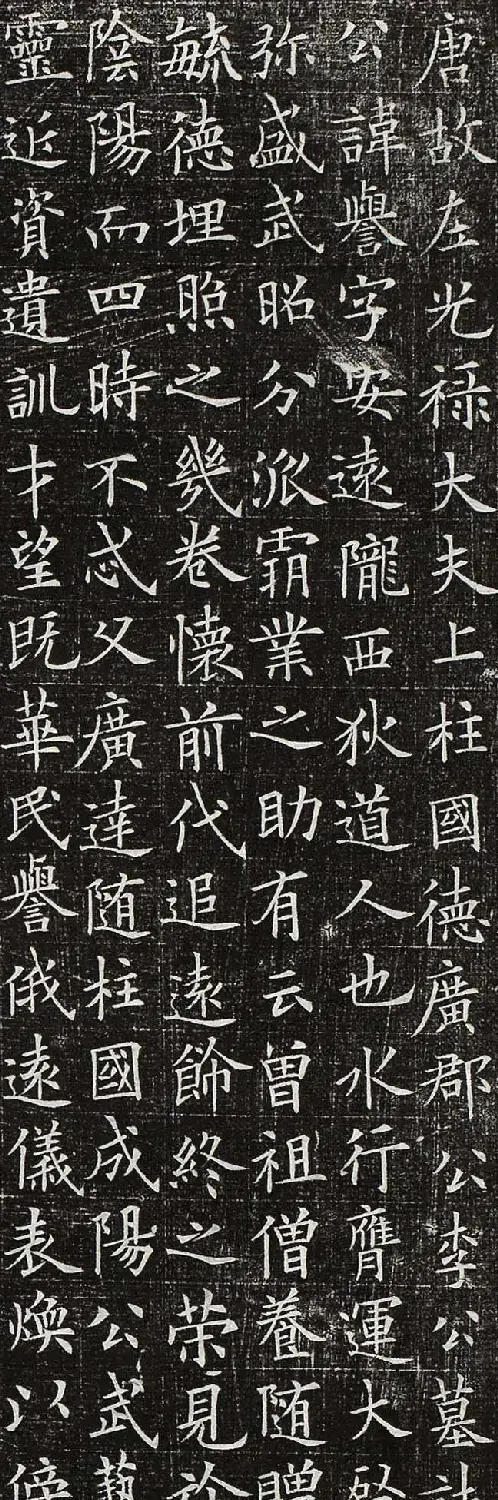 唐故左光禄大夫上柱國德廣郡公李公墓
公諱譽字安遠隴西狄道人也水行膺運大
弥盛武昭分派霸業之助有云曾祖僧養随
毓德埋照之幾卷懷前代追遠飾終之荣見
陰陽而四時不忒父廣達随柱國成陽公武
靈近資遺訓才望既華民譽俄遠儀表煥以